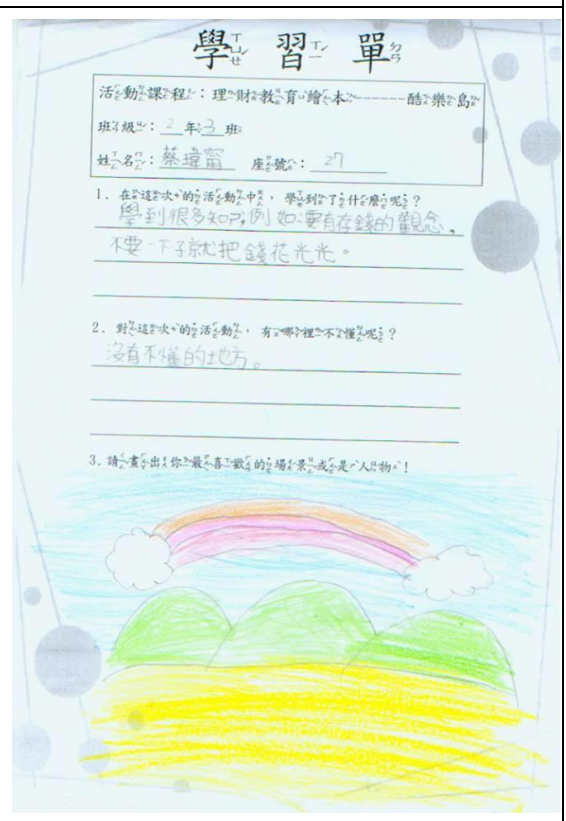 學習單
活動課程：理財教育繪本------酷樂島
班級：2年3班
姓名：蔡瑋甯 座號：27
1. 在這次的活動中，學到了什麼呢？
學到很多知ㄕˋ,例如:要有存錢的觀念。
不要一下子就把錢花光光。
2. 對這次的活動，有哪裡不懂呢？
沒有不懂的地方。
3. 請畫出你最喜歡的場景或是人物！